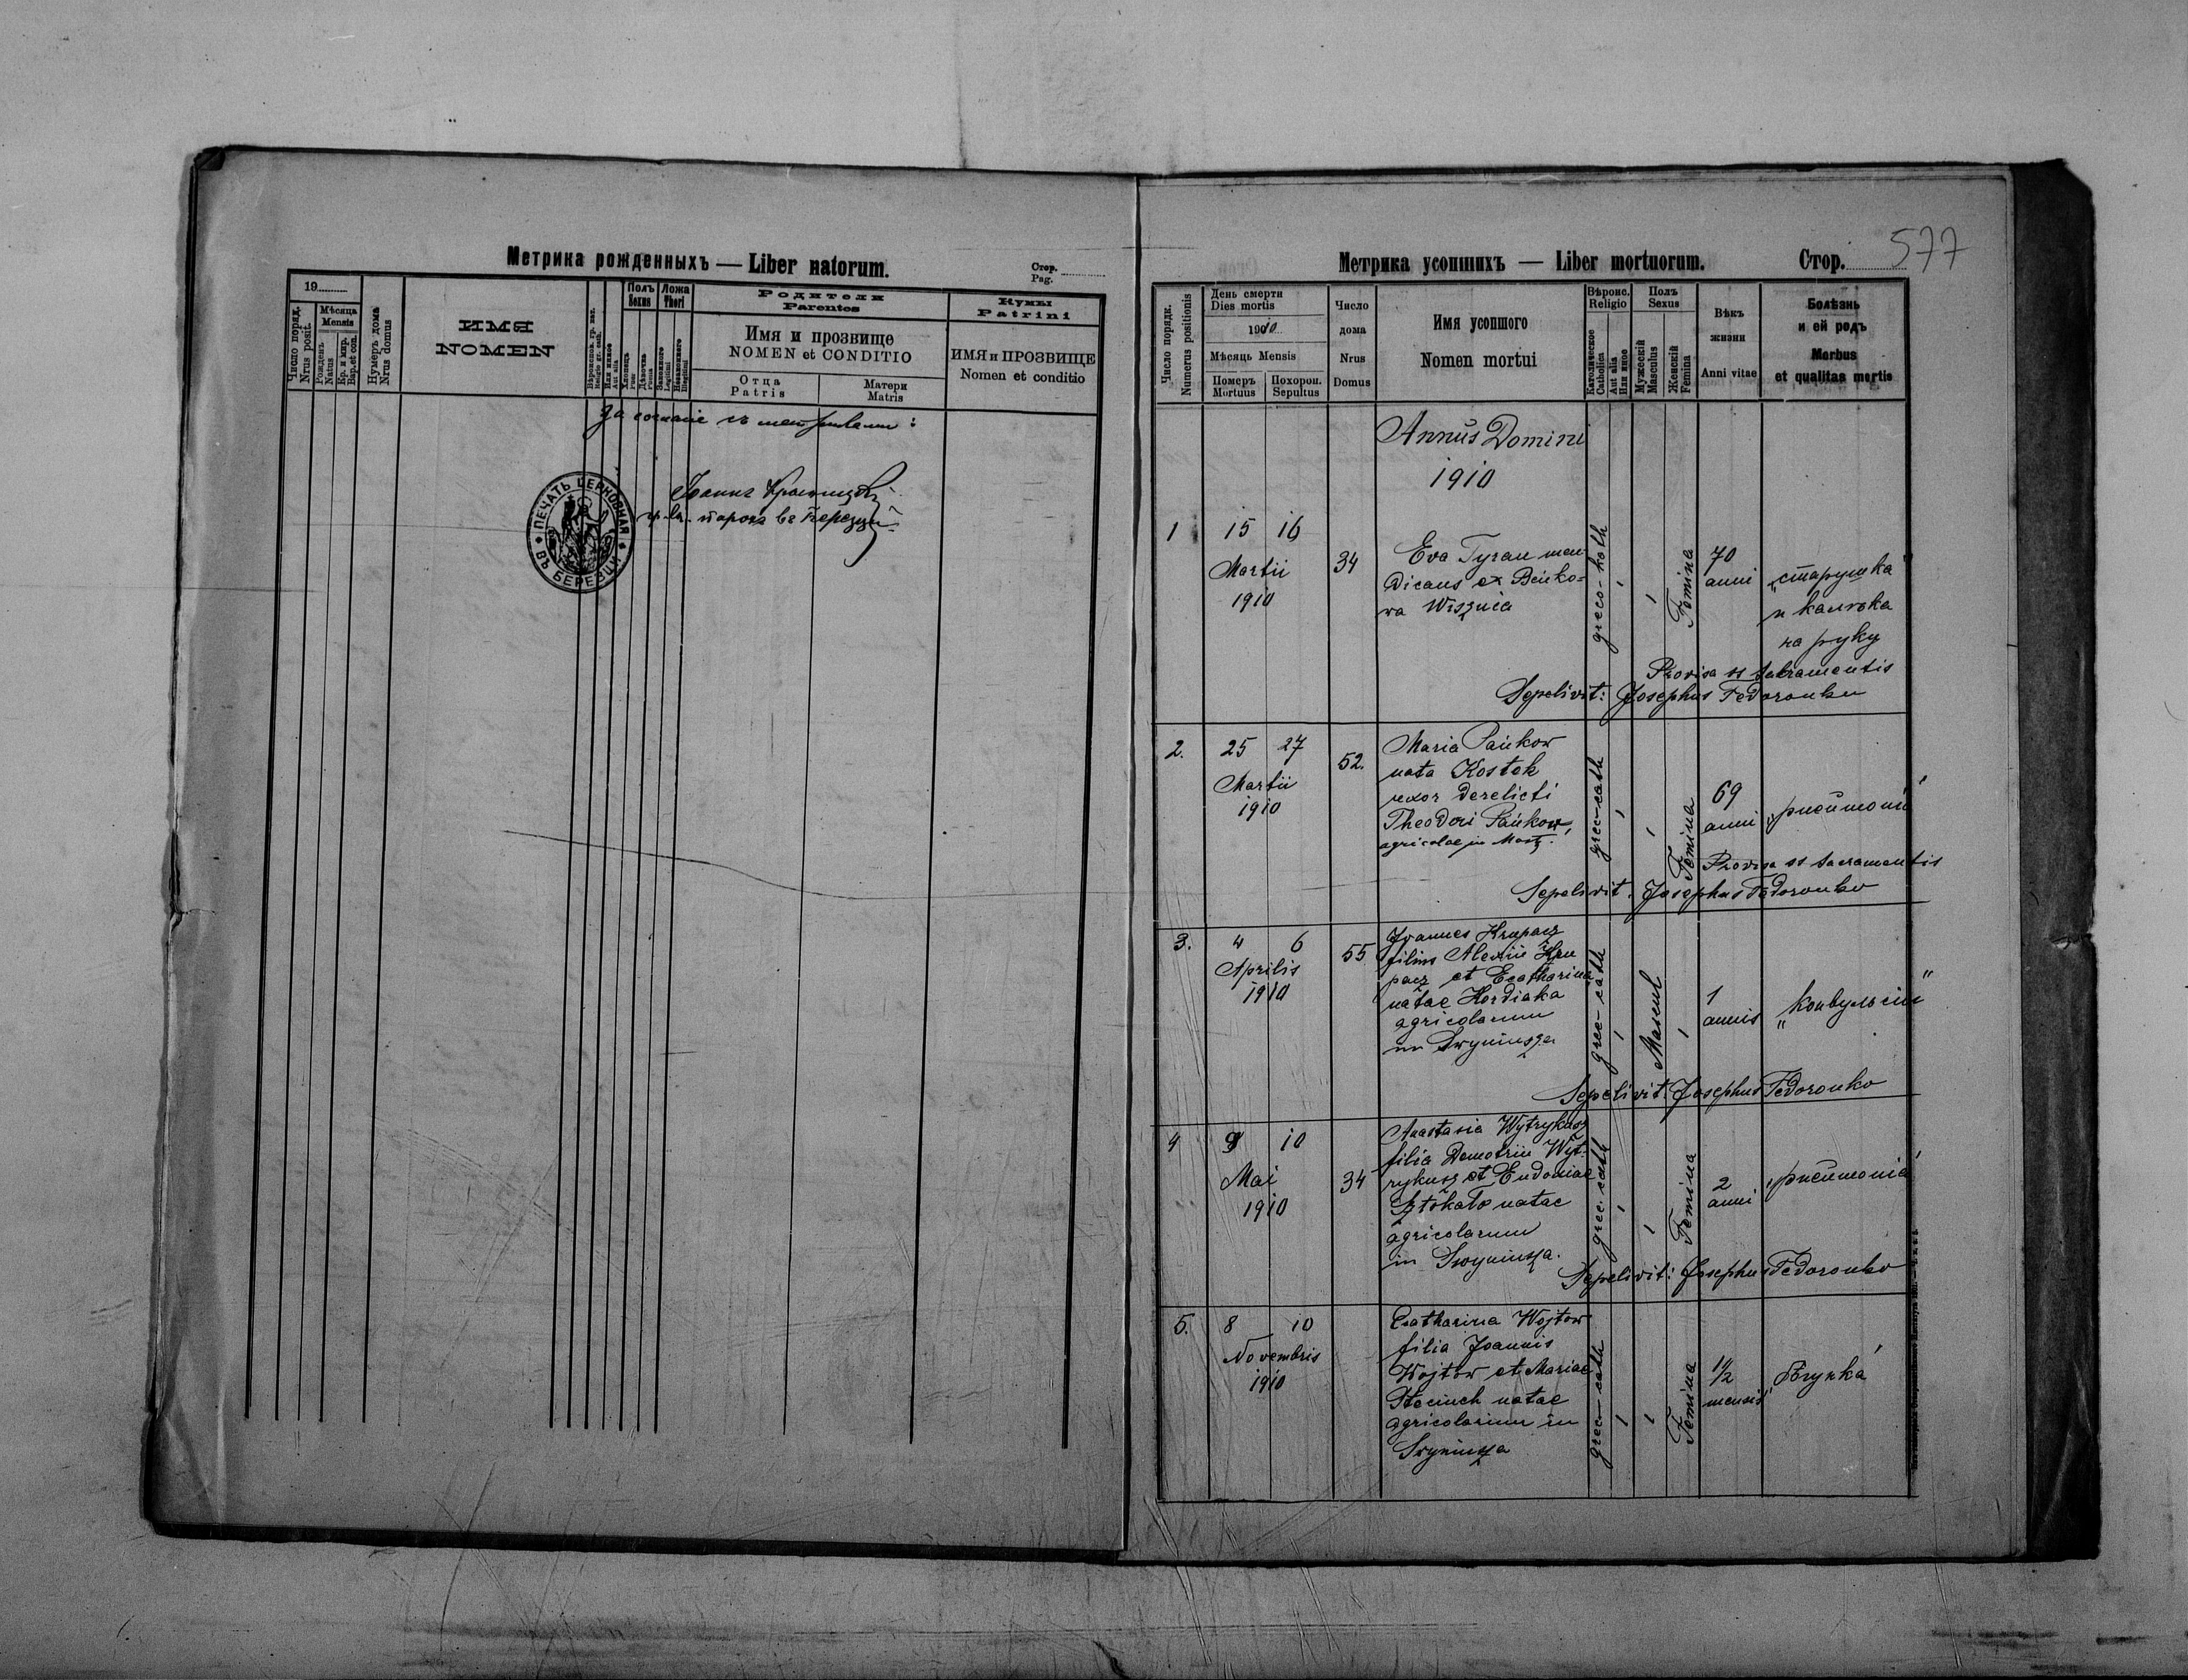 Метрика рожденныхъ — Liber natorum.
Стор.
Pag.
19
Число поряд.
Nrus posit.
Мѣсяца
Mensis
Рожденъ
Natus
Кр. и мир.
Bap. et con.
Нумеръ дома
Nrus domus
ИМЯ
NOMEN
Religio gr. cath.
Или инное
Aut alia
Полъ
Sexus
Хлопець
Puer
Дѣвочка
Puella
Ложа
Thori
Законного
Legitimi
Незаконного
Illegitimi
Родители
Parentes
Имя и прозвище
NOMEN et CONDITIO
Отца
Patris
Матери
Matris
Кумы
Patrini
ИМЯ и ПРОЗВИЩЕ
Nomen et conditio
За согласіе съ метриками:
Іоаннъ
гр. к. парохъ въ
ПЕЧАТЬ ЦЕРКОВНАЯ
ВЪ БЕРЕЗЦИ
577
Метрика усопшихъ — Liber mortuorum.
Стор.
Число порядк.
Numerus positionis
День смерти
Dies mortis
1910
Мѣсяць Mensis
Померъ
Mortuus
Похорон.
Sepultus
Число
дома
Nrus
Domus
Имя усопшого
Nomen mortui
Вѣроис.
Religio
Католическое
Catholica
Aut alia
Или иное
Полъ
Sexus
Мужескій
Masculus
Женскій
Femina
Вѣкъ
жизни
Anni vitae
Болѣзнь
и ей родъ
Morbus
et qualitas mortis
Annus Domini
1910
1
15 16
Martii
1910
34
Eva Tyran men-
dicans ex Beńko-
wa Wisznia
greco-kath
Femina
70
anni
„старушка"
и калѣка
на руку
Provisa ss Sacramentis
Sepelivit: Josephus Fedoronko
2.
25 27
Martii
1910
52.
Maria Pańkow
nata Kostek
uxor derelicti
Theodori Pańkow,
agricolae in
grec-cath
Femina
69
anni
„pneumonia"
Provisa ss Sacramentis
Sepelivit. Josephus Fedoronko
3.
4 6
Aprilis
1910
55
Joannes Krupacz
filius Alexii Kru
pacz et Ecatharina
natae Hordiaka
agricolarum
in Dwyniusza
grec-cath
Mascul
1
annis
„конвульсіи"
Sepelivit. Josephus Fedoronko
4
9 10
Mai
1910
34
Anastasia Wytrykusz
filia Demetrii Wyt-
rykusz et Eudoxiae
Sztokało natae
agricolarum
in Dwyniusza.
grec. cath
Femina
2
anni
„pneumonia"
Sepelivit: Josephus Fedoronko
5.
8 10
Novembris
1910
Ecatharina Wojtow
filia Joannis
Wojtow et Mariae
natae
agricolarum in
Dwyniusza
grec-cath
Femina
1 1/2
mensis